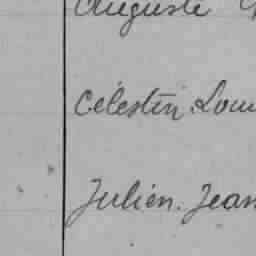 Auguste
Célestin Lou
Julien. Jean